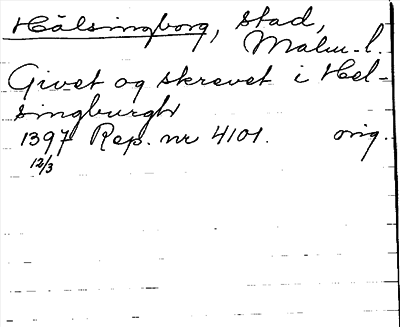 Hälsingborg, stad,
Malm. l.
Givet og skrevet i Hel-
singburgh
1397 Rep. nr 4101. orig.
12/3